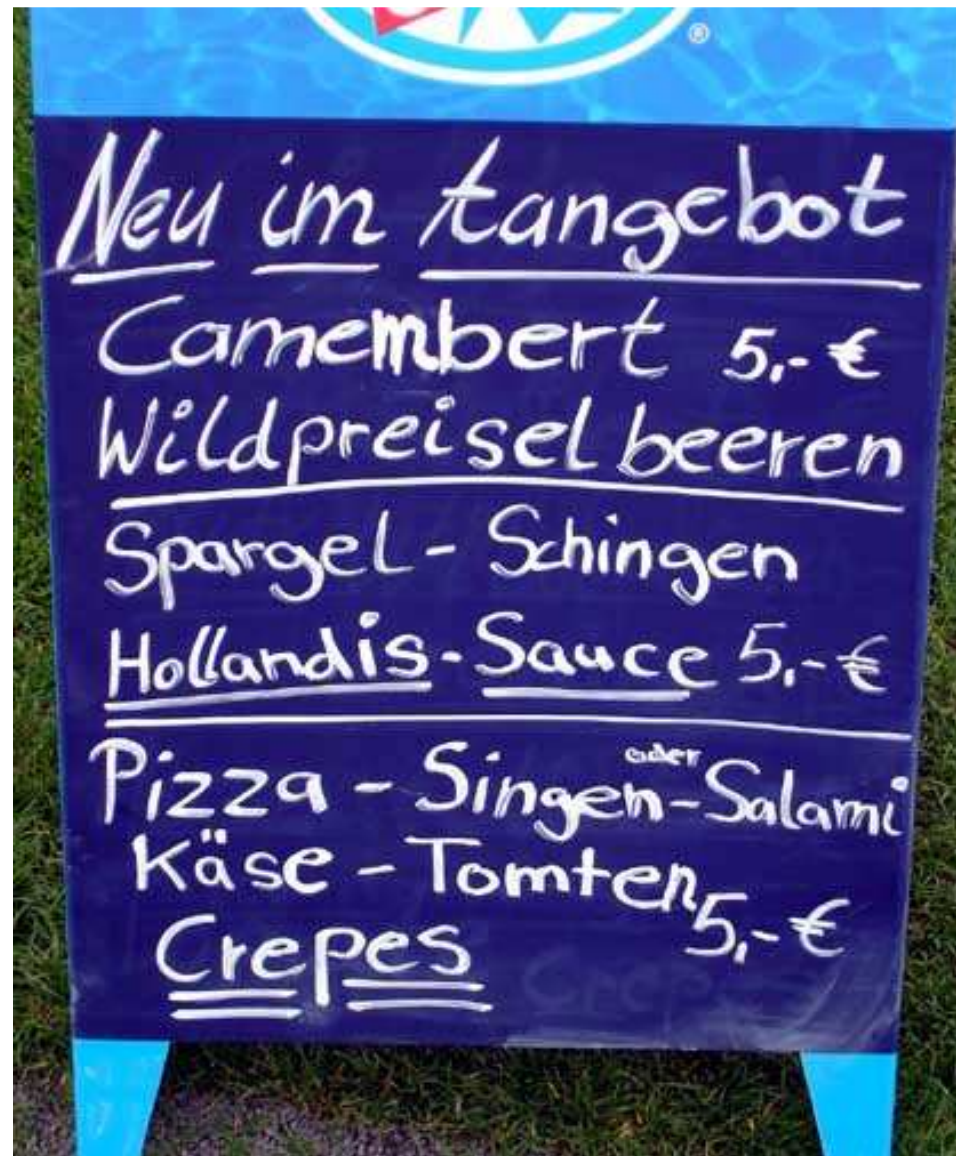 ®
Neu im tangebot
Camembert 5,-€
Wildpreiselbeeren
Spargel - Schingen
Hollandis-Sauce 5,-€
Pizza - Singen oder -Salami
Käse - Tomten 5,-€
Crepes